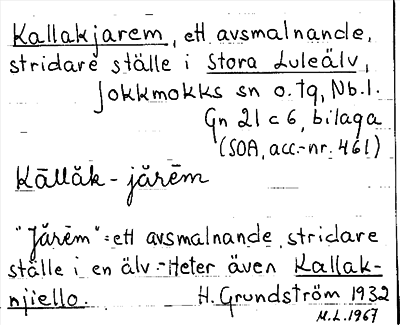 Kallakjarem, ett avsmalnande,
stridare ställe i Stora Luleälv,
Jokkmokks sn o. tg, Nb.l.
Gn 21 c 6, bilaga
(SOA, acc.-nr. 461)
Kāllăk - jărēm
"Jărēm" = ett avsmalnande, stridare
ställe i en älv. - Heter även Kallak-
njiello. H. Grundström 1932
M.L. 1967